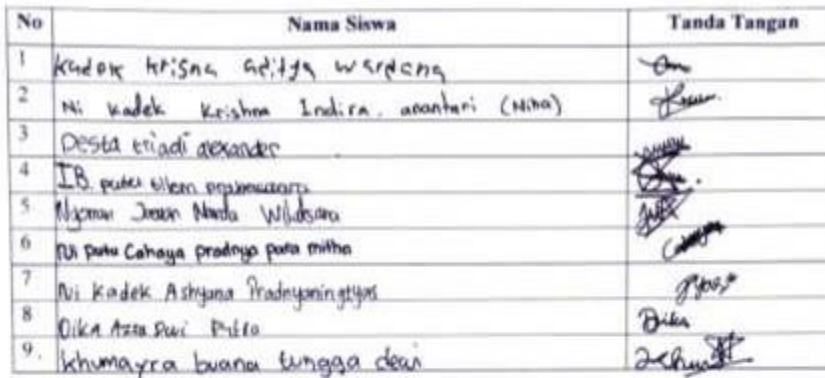 No Nama Siswa Tanda Tangan
1 Kadek Krisna Aditya Wardana
2 Ni Kadek Krishna Indira. anantari (Niha)
3 Desta triadi alexander
4 IB. putu tilem
5 Nyoman Nanda
6 Ni Putu Cahaya pradnya para mitha
7 Ni Kadek Ashyana Pradnyaningtyas
8 Dika Azra Dwi Putro Dika
9. Khumayra buana tungga dewi